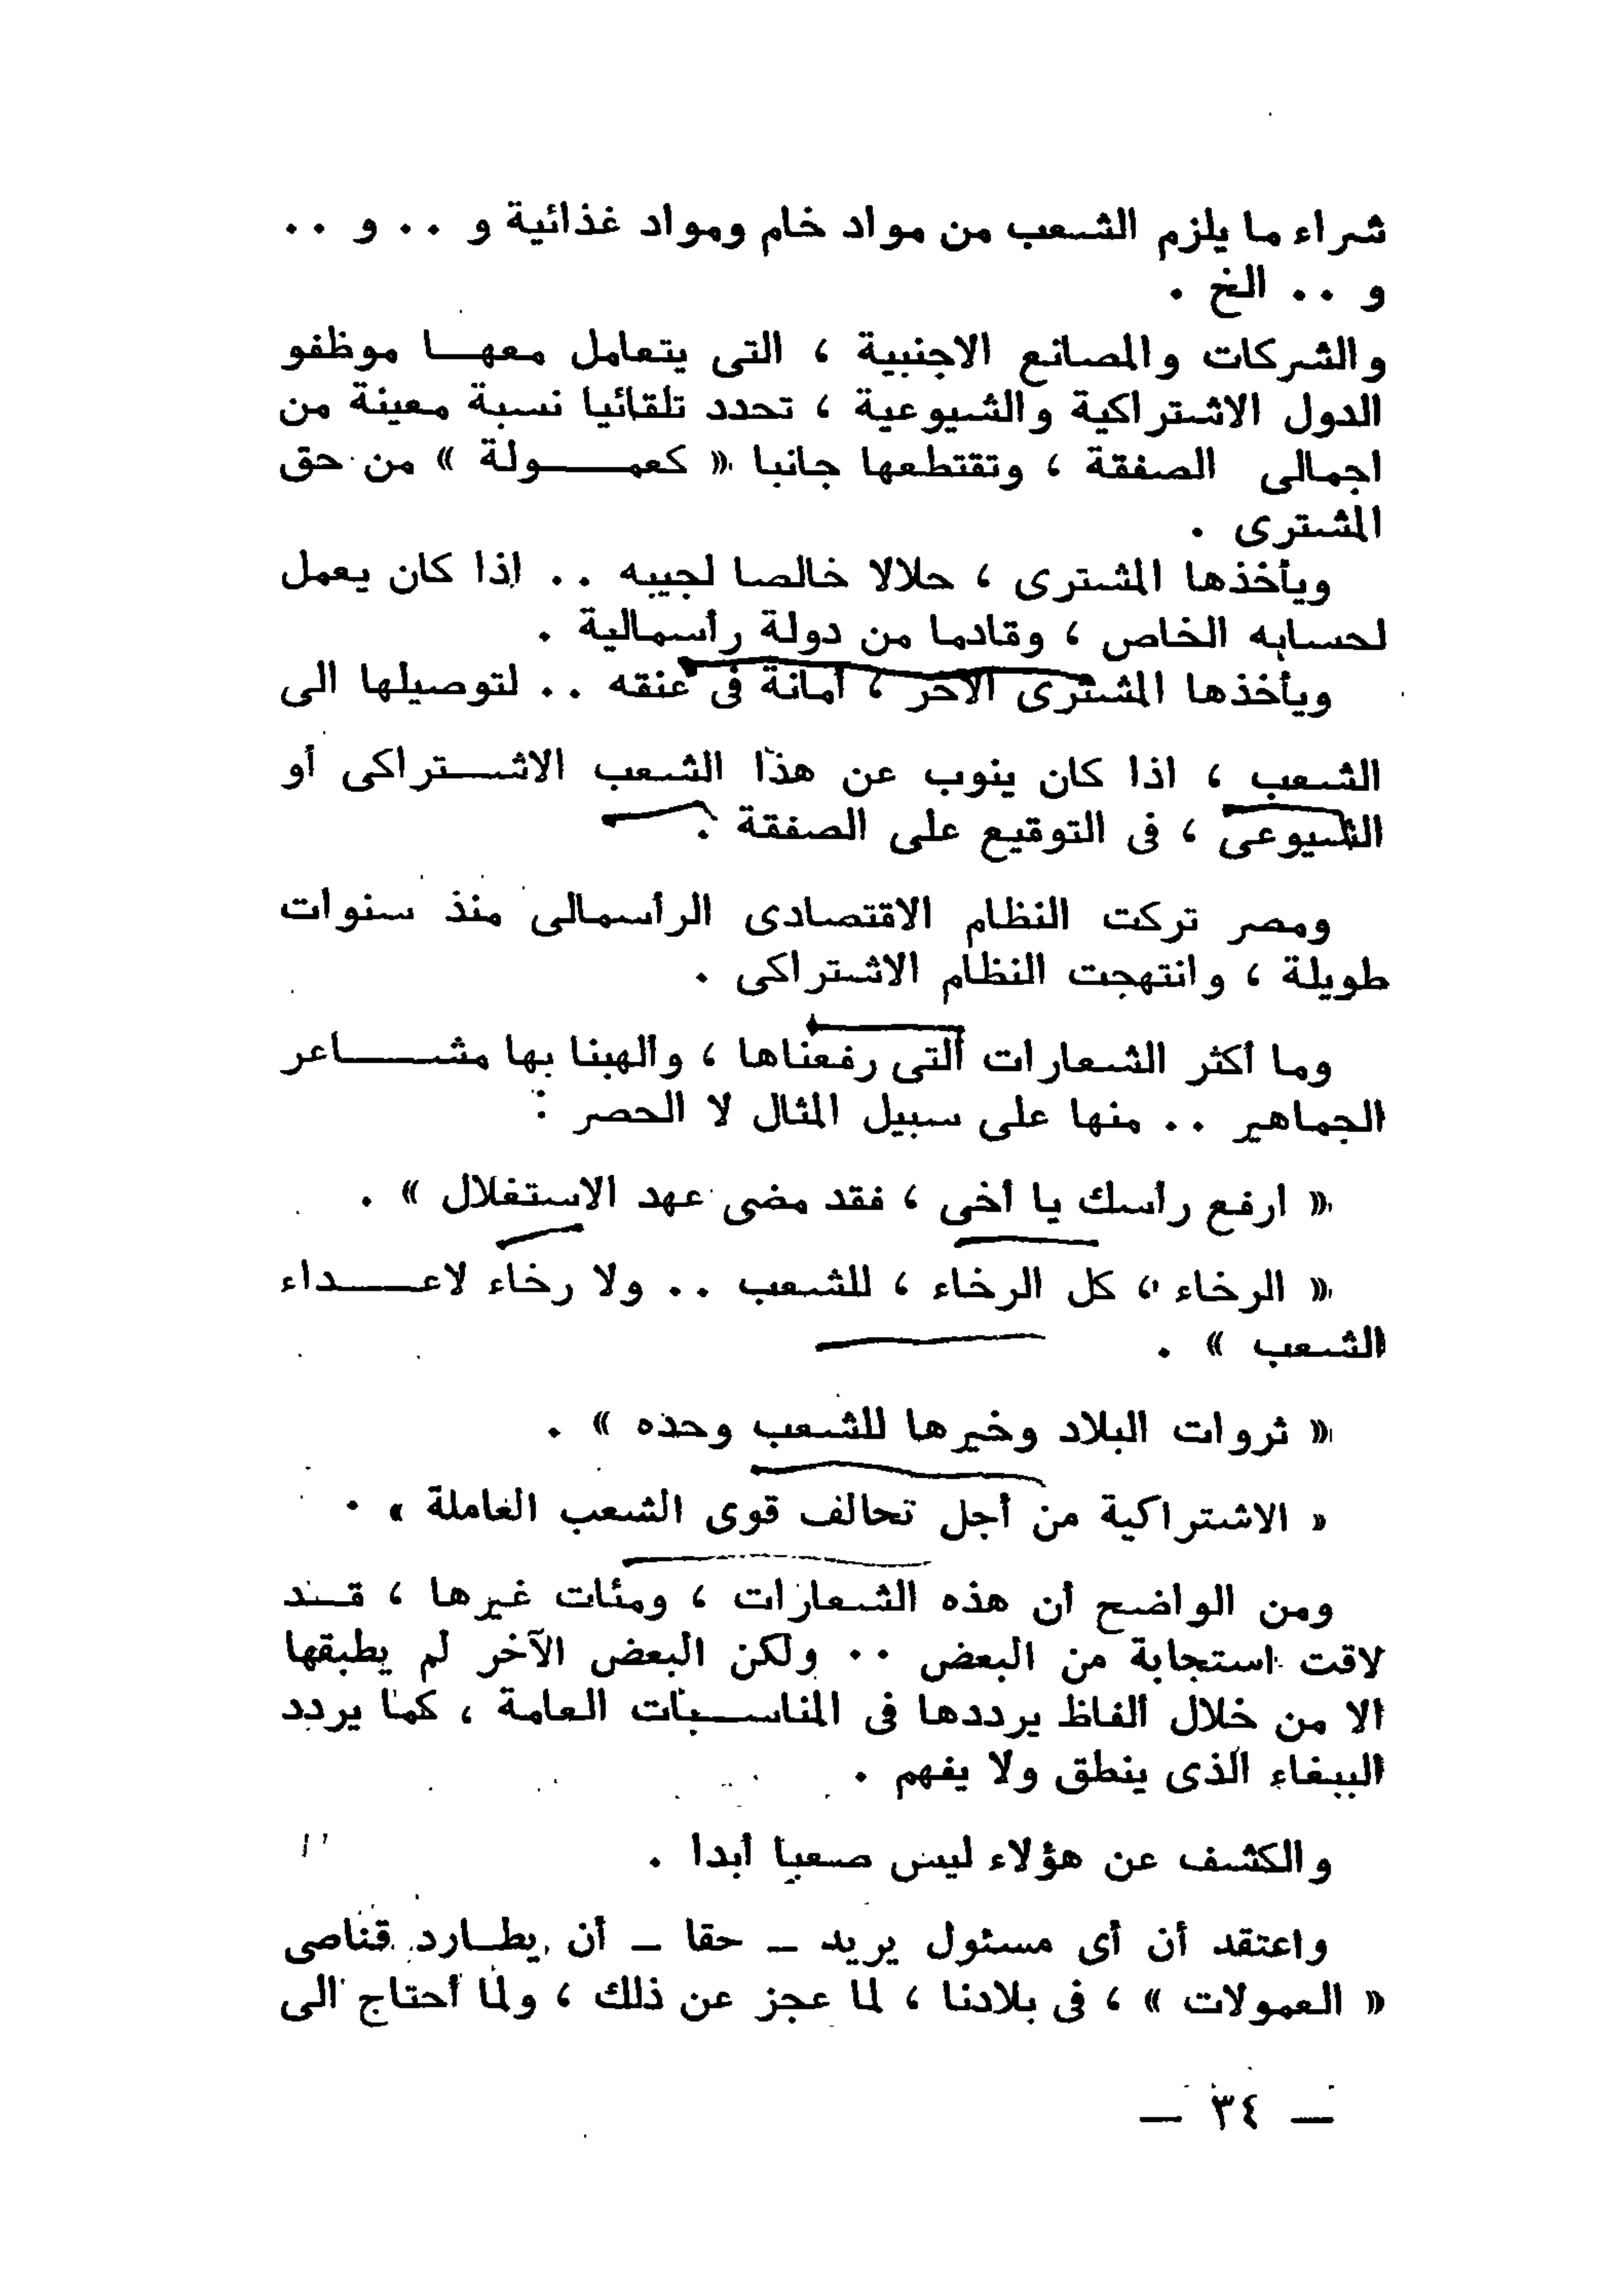 شراء ما يلزم الشعب من مواد خام ومواد غذائية و .. و ..
و .. الخ .
والشركات والمصانع الاجنبية ، التى يتعامل معها موظفو
الدول الاشتراكية والشيوعية ، تحدد تلقائيا نسبة معينة من
اجمالى الصفقة ، وتقتطعها جانبا « كعمولة » من حق
المشترى .
ويأخذها المشترى ، حلالا خالصا لجيبه .. اذا كان يعمل
لحسابه الخاص ، وقادما من دولة رأسمالية .
ويأخذها المشترى الآخر ، أمانة فى عنقه .. لتوصيلها الى
الشعب ، اذا كان ينوب عن هذا الشعب الاشتراكى أو
الشيوعى ، فى التوقيع على الصفقة .
ومصر تركت النظام الاقتصادى الرأسمالى منذ سنوات
طويلة ، وانتهجت النظام الاشتراكى .
وما أكثر الشعارات التى رفعناها ، وألهبنا بها مشاعر
الجماهير .. منها على سبيل المثال لا الحصر :
« ارفع رأسك يا أخى ، فقد مضى عهد الاستغلال » .
« الرخاء ، كل الرخاء ، للشعب .. ولا رخاء لاعداء
الشعب » .
« ثروات البلاد وخيرها للشعب وحده » .
« الاشتراكية من أجل تحالف قوى الشعب العاملة » .
ومن الواضح أن هذه الشعارات ، ومئات غيرها ، قد
لاقت استجابة من البعض .. ولكن البعض الآخر لم يطبقها
الا من خلال ألفاظ يرددها فى المناسبات العامة ، كما يردد
الببغاء الذى ينطق ولا يفهم .
والكشف عن هؤلاء ليس صعبا أبدا .
واعتقد أن أى مسئول يريد – حقا – أن يطارد قناصى
« العمولات » ، فى بلادنا ، لما عجز عن ذلك ، ولما أحتاج الى
— ٣٤ —